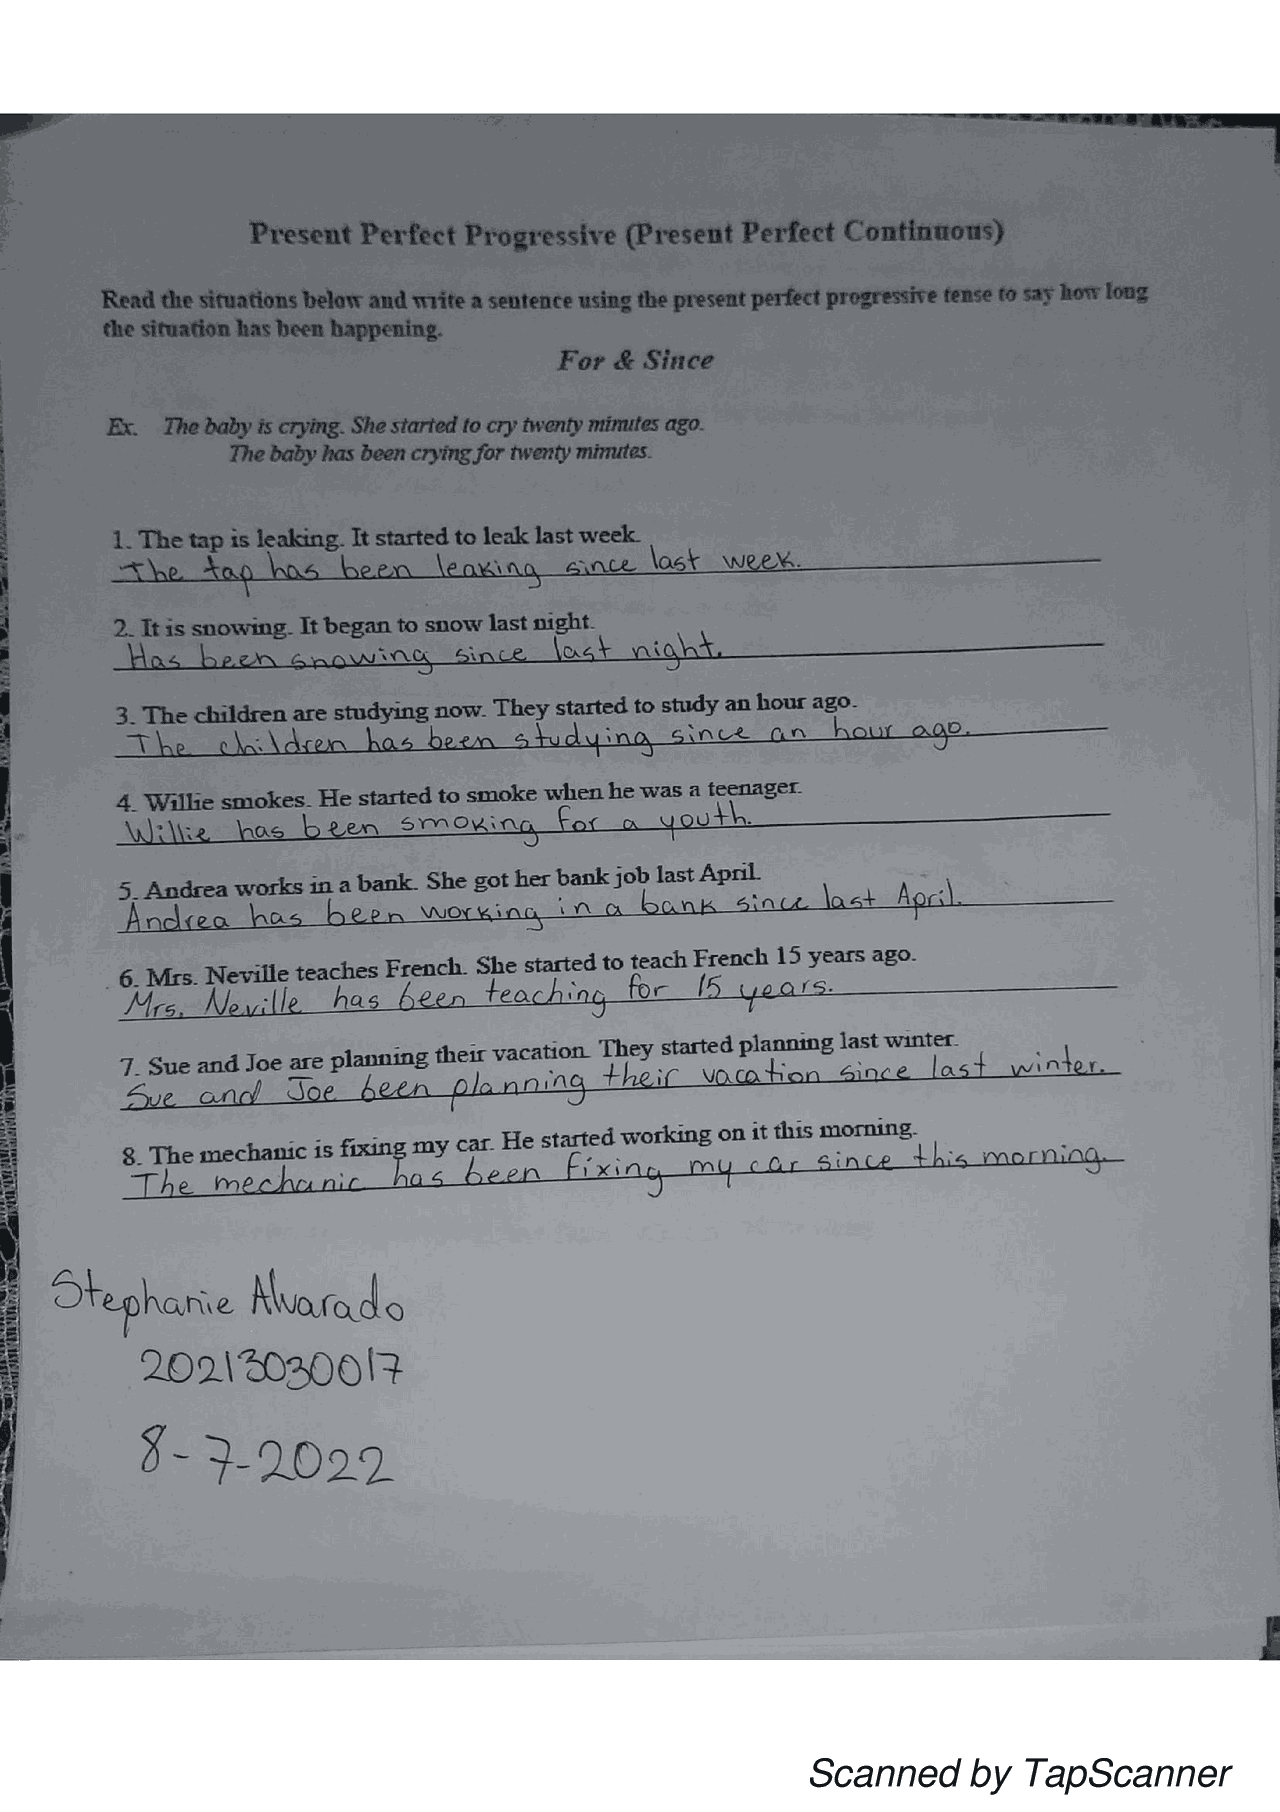 Present Perfect Progressive (Present Perfect Continuous)
Read the situations below and write a sentence using the present perfect progressive tense to say how long
the situation has been happening.
For & Since
Ex. The baby is crying. She started to cry twenty minutes ago.
The baby has been crying for twenty minutes.
1. The tap is leaking. It started to leak last week.
The tap has been leaking since last week.
2. It is snowing. It began to snow last night.
Has been snowing since last night.
3. The children are studying now. They started to study an hour ago.
The children has been studying since an hour ago.
4. Willie smokes. He started to smoke when he was a teenager.
Willie has been smoking for a youth.
5. Andrea works in a bank. She got her bank job last April.
Andrea has been working in a bank since last April.
6. Mrs. Neville teaches French. She started to teach French 15 years ago.
Mrs. Neville has been teaching for 15 years.
7. Sue and Joe are planning their vacation. They started planning last winter.
Sue and Joe been planning their vacation since last winter.
8. The mechanic is fixing my car. He started working on it this morning.
The mechanic has been fixing my car since this morning.
Stephanie Alvarado
20213030017
8-7-2022
Scanned by TapScanner